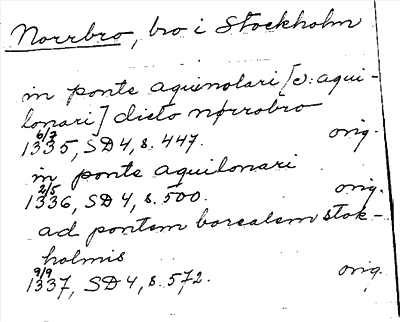 Norrbro, bro i Stockholm
in ponte aquinolari [ɔ: aqui-
lonari] dicto nørrobro
6/7
1335, SD 4, s. 447. orig.
in ponte aquilonari
2/5
1336, SD 4, s. 500. orig.
ad pontem borealem stok-
holmis
9/9
1337, SD 4, s. 572. orig.